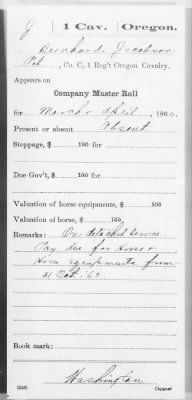 J | 1 Cav. | Oregon.
Bernhard Jacobson
Pvt, Co. C, 1 Reg't Oregon Cavalry.
Appears on
Company Muster Roll
for March & April, 186
Present or absent Absent
Stoppage, $ 100 for
Due Gov't, $ 100 for
Valuation of horse equipments, $ 100
Valuation of horse, $ 100
Remarks: On detached service
Pay due for horse &
horse equipments from
31 Oct. '64
Book mark:
Washington
(358)
Copyist.